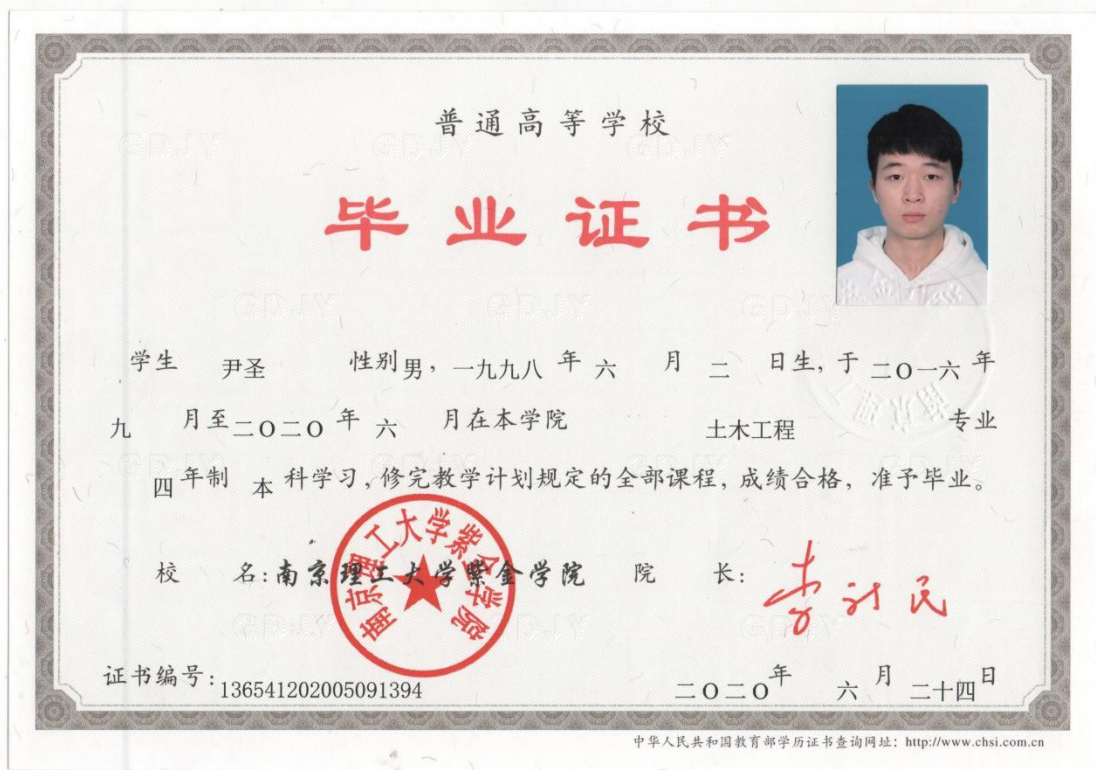 普通高等学校
毕业证书
学生 尹圣 性别男，一九九八年六月二日生，于二〇一六年
九月至二〇二〇年六月在本学院 土木工程 专业
四年制 本科学习，修完教学计划规定的全部课程，成绩合格，准予毕业。
南京理工大学紫金学院
校 名：南京理工大学紫金学院 院 长：
证书编号：136541202005091394 二〇二〇年六月二十四日
中华人民共和国教育部学历证书查询网址：http://www.chsi.com.cn